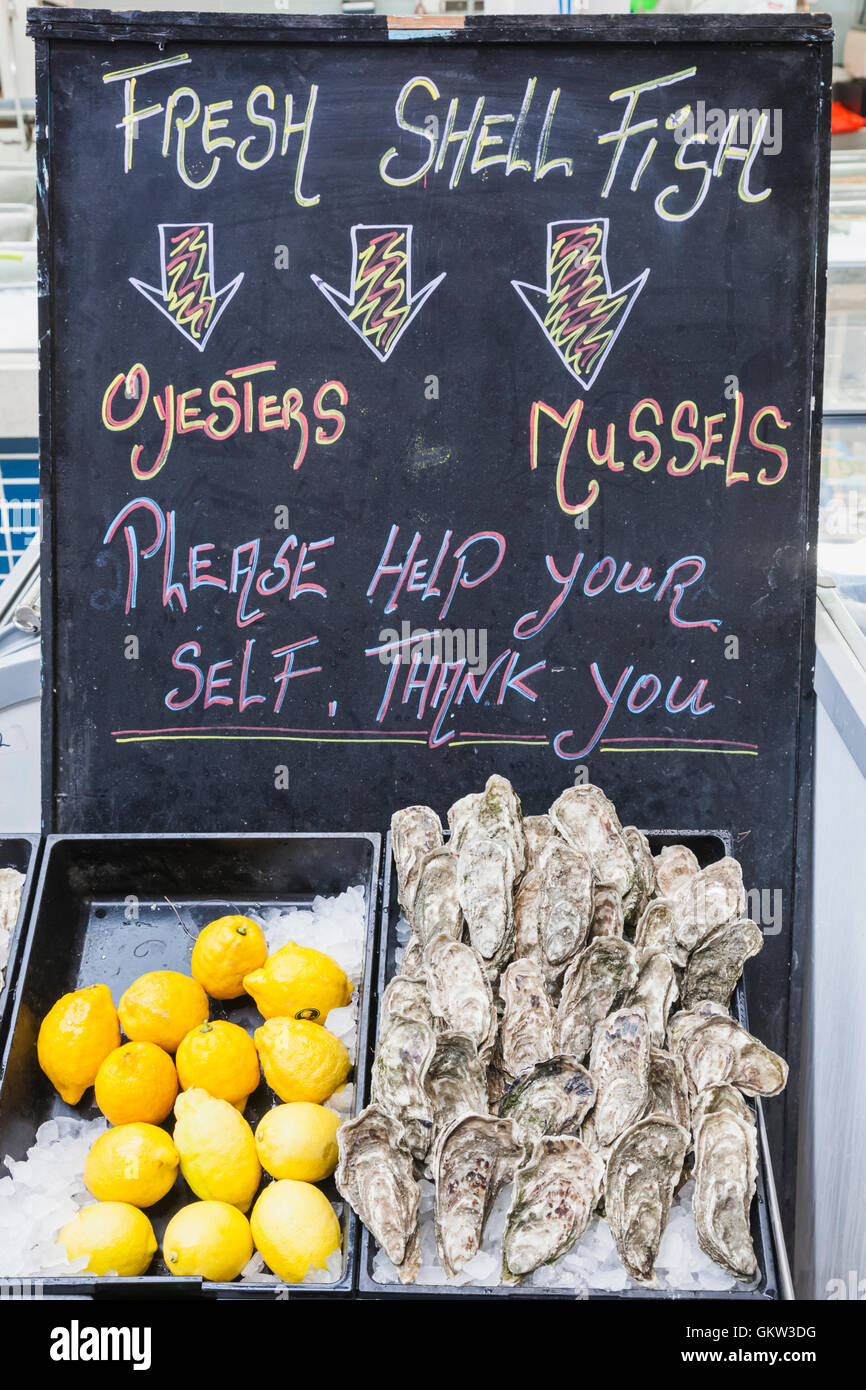 Fresh Shell Fish
Oyesters Mussels
Please help your
self. Thank you
a
alamy
a
alamy
Image ID: GKW3DG
www.alamy.com